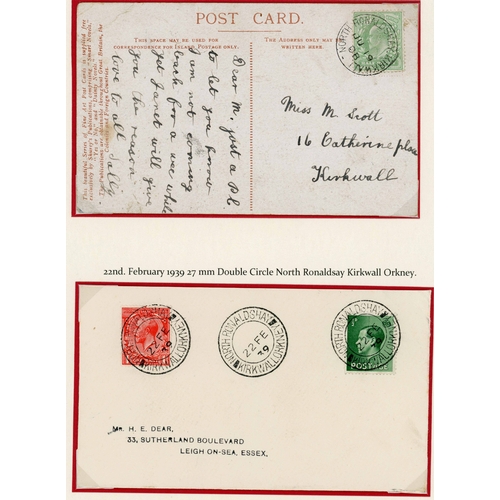 POST CARD.
THIS SPACE MAY BE USED FOR
CORRESPONDENCE FOR INLAND POSTAGE ONLY.
THE ADDRESS TO BE
WRITTEN HERE.
Dear M. just a P.C.
to let you know
I am not coming
back for a use while
yet Janet will give
you the reason
love to all Sally
Miss M. Scott
16 Catherine place
Kirkwall
22nd. February 1939 27 mm Double Circle North Ronaldsay Kirkwall Orkney.
NORTH RONALDSHAY
22 FE
39
KIRKWALL ORKNEY
NORTH RONALDSHAY
22 FE
39
KIRKWALL ORKNEY
NORTH RONALDSHAY
22 FE
39
KIRKWALL ORKNEY
POSTAGE
MR. H. E. DEAR,
33, SUTHERLAND BOULEVARD
LEIGH-ON-SEA, ESSEX.